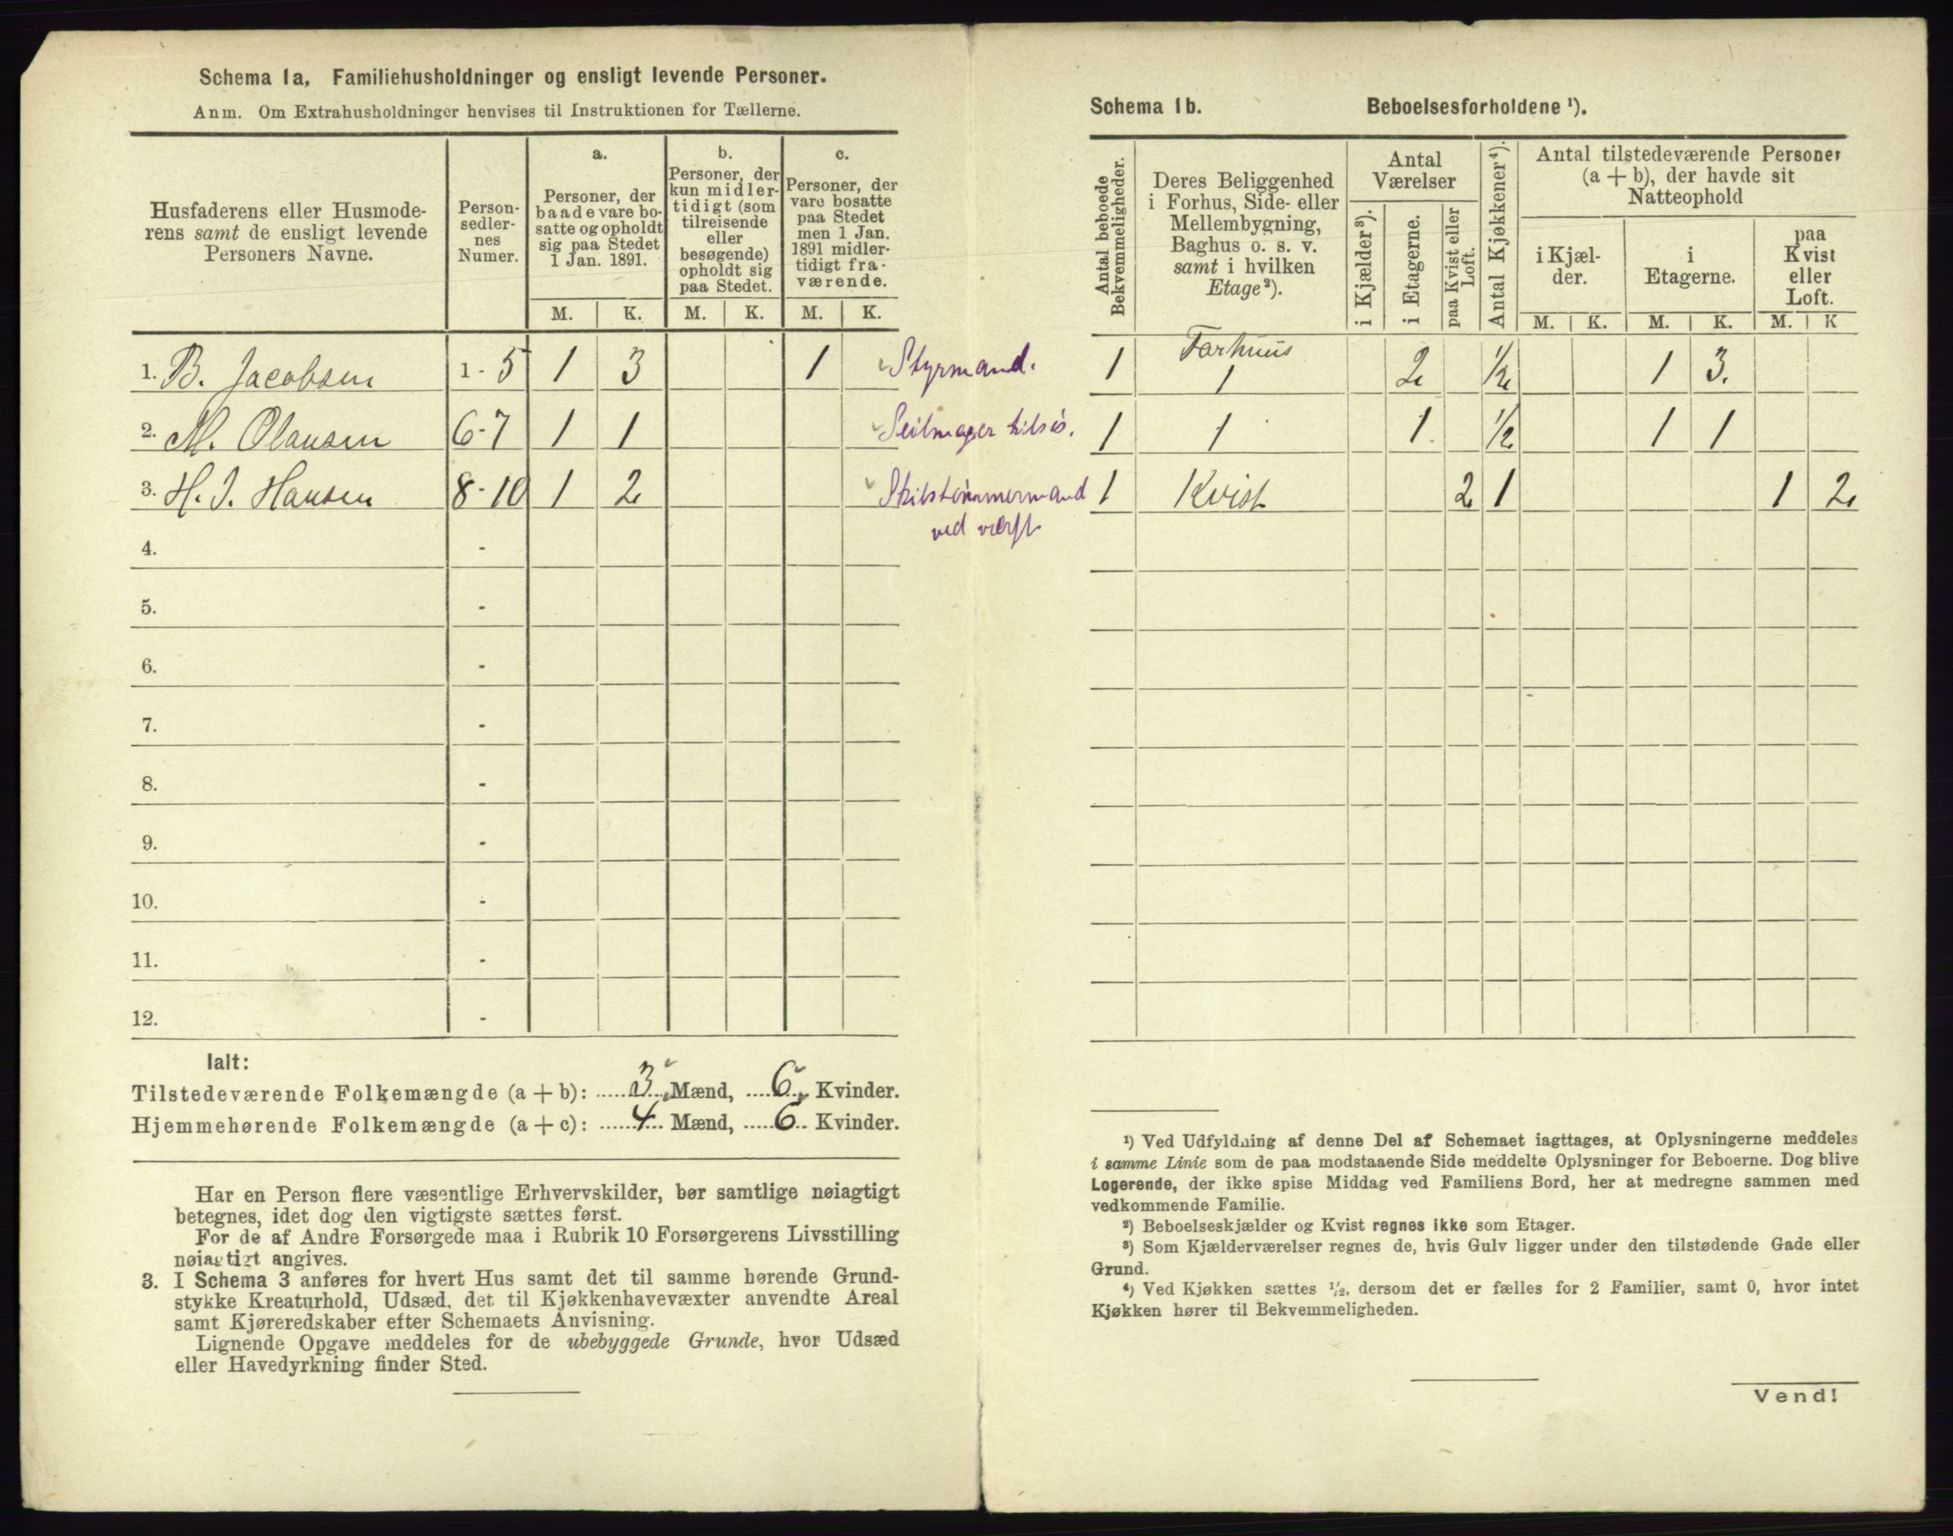 Schema 1a, Familiehusholdninger og ensligt levende Personer.
Anm. Om Extrahusholdninger henvises til Instruktionen for Tællerne.
Husfaderens eller Husmode-
rens samt de ensligt levende
Personers Navne.
Person-
sedler-
nes
Numer.
a.
Personer, der
baade vare bo-
satte og opholdt
sig paa Stedet
1 Jan. 1891.
b.
Personer, der
kun midler-
tidigt (som
tilreisende
eller
besøgende)
opholdt sig
paa Stedet.
c.
Personer, der
vare bosatte
paa Stedet
men 1 Jan.
1891 midler-
tidigt fra-
værende.
M. K. M. K. M. K.
1. B. Jacobsen 1 - 5 1 3 1 Styrmand.
2. M. Olausen 6 - 7 1 1 Seilmager tilsøs.
3. H. J. Hansen 8 - 10 1 2 Skibstømmermand
ved værft
4. -
5. -
6. -
7. -
8. -
9. -
10. -
11. -
12. -
Ialt:
Tilstedeværende Folkemængde (a + b): 3 Mænd, 6 Kvinder.
Hjemmehørende Folkemængde (a + c): 4 Mænd, 6 Kvinder.
Har en Person flere væsentlige Erhvervskilder, bør samtlige nøiagtigt
betegnes, idet dog den vigtigste sættes først.
For de af Andre Forsørgede maa i Rubrik 10 Forsørgerens Livsstilling
nøiagtigt angives.
3. I Schema 3 anføres for hvert Hus samt det til samme hørende Grund-
stykke Kreaturhold, Udsæd, det til Kjøkkenhavevæxter anvendte Areal
samt Kjøreredskaber efter Schemaets Anvisning.
Lignende Opgave meddeles for de ubebyggede Grunde, hvor Udsæd
eller Havedyrkning finder Sted.
Schema 1b. Beboelsesforholdene ¹).
Antal beboede
Bekvemmeligheder.
Deres Beliggenhed
i Forhus, Side- eller
Mellembygning,
Baghus o. s. v.
samt i hvilken
Etage²).
Antal
Værelser
i Kjælder³).
i Etagerne.
paa Kvist eller
Loft.
Antal Kjøkkener⁴).
Antal tilstedeværende Personer
(a + b), der havde sit
Natteophold
i Kjæl-
der.
i
Etagerne.
paa
Kvist
eller
Loft.
M. K. M. K. M. K
1 Forhuus
1 2 ½ 1 3.
1 1 1 ½ 1 1
1 Kvist 2 1 1 2
¹) Ved Udfyldning af denne Del af Schemaet iagttages, at Oplysningerne meddeles
i samme Linie som de paa modstaaende Side meddelte Oplysninger for Beboerne. Dog blive
Logerende, der ikke spise Middag ved Familiens Bord, her at medregne sammen med
vedkommende Familie.
²) Beboelseskjælder og Kvist regnes ikke som Etager.
³) Som Kjælderværelser regnes de, hvis Gulv ligger under den tilstødende Gade eller
Grund.
⁴) Ved Kjøkken sættes ½, dersom det er fælles for 2 Familier, samt 0, hvor intet
Kjøkken hører til Bekvemmeligheden.
Vend!